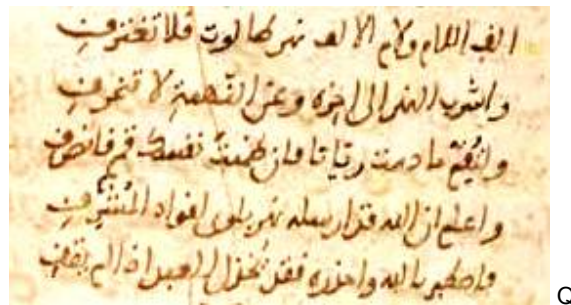 الف اللام ولام الالف نهر طالوت فلا تغترف
واشرب النهر الى اخره وعن النهمة لا تنحرف
ولتقم ما دمت ربانا فان ظمئت نفسك قم فانصرف
واعلم ان الله قد ارسله نهر بلوى لفؤاد المشرف
فاصطبر بالله واحذره فقد يخذل العبد اذا لم يقف